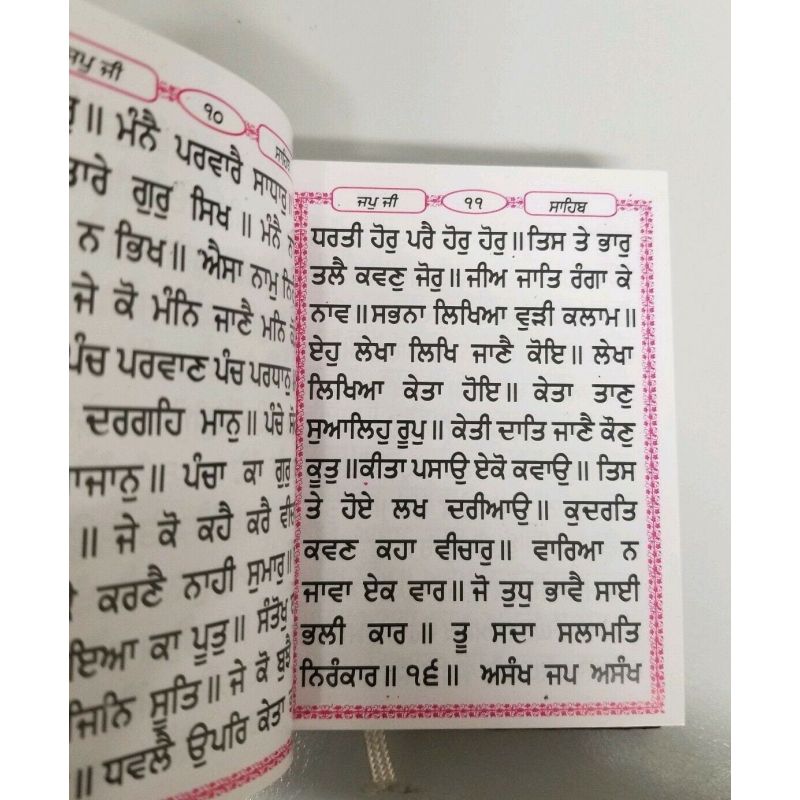 ਜਪੁ ਜੀ
੧੦
ਮੰਨੈ ਪਰਵਾਰੈ ਸਾਧਾਰੁ॥
ਤਾਰੇ ਗੁਰੁ ਸਿਖ ॥ ਮੰਨੈ ਨ
ਨ ਭਿਖ॥ ਐਸਾ ਨਾਮੁ
ਜੇ ਕੋ ਮੰਨਿ ਜਾਣੈ ਮਨਿ
ਪੰਚ ਪਰਵਾਣ ਪੰਚ ਪਰਧਾਨੁ॥
ਦਰਗਹਿ ਮਾਨੁ॥ ਪੰਚੇ
ਪੰਚਾ ਕਾ ਗੁਰੁ
॥ ਜੇ ਕੋ ਕਹੈ ਕਰੈ
ਕਰਣੈ ਨਾਹੀ ਸੁਮਾਰੁ॥
ਕਾ ਪੂਤੁ॥ ਸੰਤੋਖੁ
ਜਿਨਿ ਸੂਤਿ॥ ਜੇ ਕੋ ਬੁਝੈ
॥ ਧਵਲੈ ਉਪਰਿ ਕੇਤਾ
ਜਪੁ ਜੀ ੧੧ ਸਾਹਿਬ
ਧਰਤੀ ਹੋਰੁ ਪਰੈ ਹੋਰੁ ਹੋਰੁ॥ ਤਿਸ ਤੇ ਭਾਰੁ
ਤਲੈ ਕਵਣੁ ਜੋਰੁ॥ ਜੀਅ ਜਾਤਿ ਰੰਗਾ ਕੇ
ਨਾਵ॥ ਸਭਨਾ ਲਿਖਿਆ ਵੁੜੀ ਕਲਾਮ॥
ਏਹੁ ਲੇਖਾ ਲਿਖਿ ਜਾਣੈ ਕੋਇ॥ ਲੇਖਾ
ਲਿਖਿਆ ਕੇਤਾ ਹੋਇ॥ ਕੇਤਾ ਤਾਣੁ
ਸੁਆਲਿਹੁ ਰੂਪੁ॥ ਕੇਤੀ ਦਾਤਿ ਜਾਣੈ ਕੌਣੁ
ਕੂਤੁ॥ ਕੀਤਾ ਪਸਾਉ ਏਕੋ ਕਵਾਉ॥ ਤਿਸ
ਤੇ ਹੋਏ ਲਖ ਦਰੀਆਉ॥ ਕੁਦਰਤਿ
ਕਵਣ ਕਹਾ ਵੀਚਾਰੁ॥ ਵਾਰਿਆ ਨ
ਜਾਵਾ ਏਕ ਵਾਰ॥ ਜੋ ਤੁਧੁ ਭਾਵੈ ਸਾਈ
ਭਲੀ ਕਾਰ ॥ ਤੂ ਸਦਾ ਸਲਾਮਤਿ
ਨਿਰੰਕਾਰ॥ ੧੬॥ ਅਸੰਖ ਜਪ ਅਸੰਖ